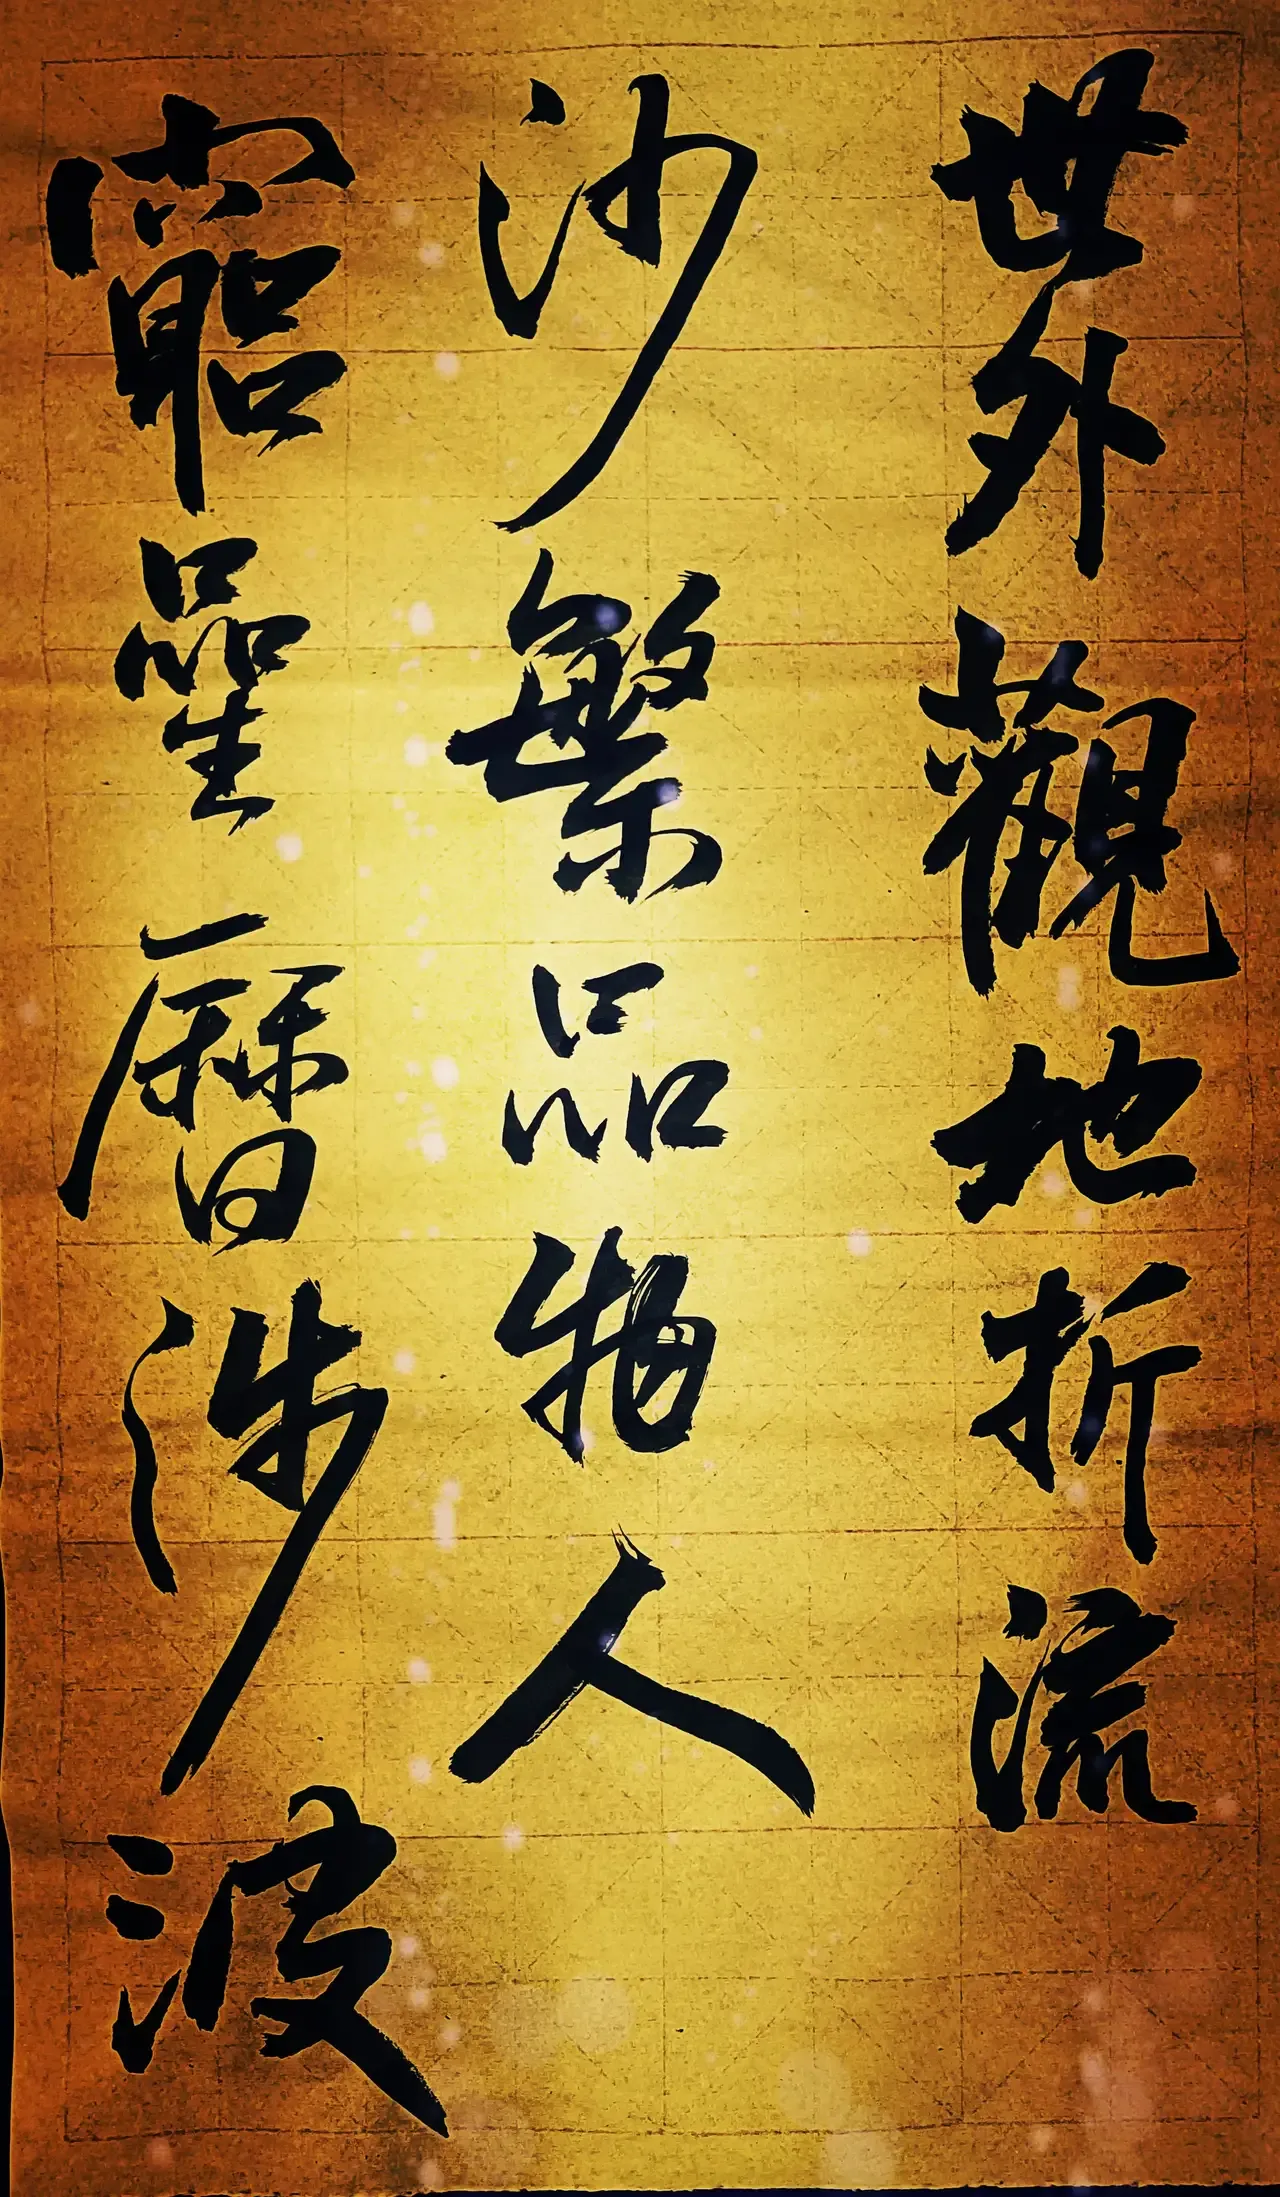 世外觀地折流
沙繁品物人
竆曐曆涉波